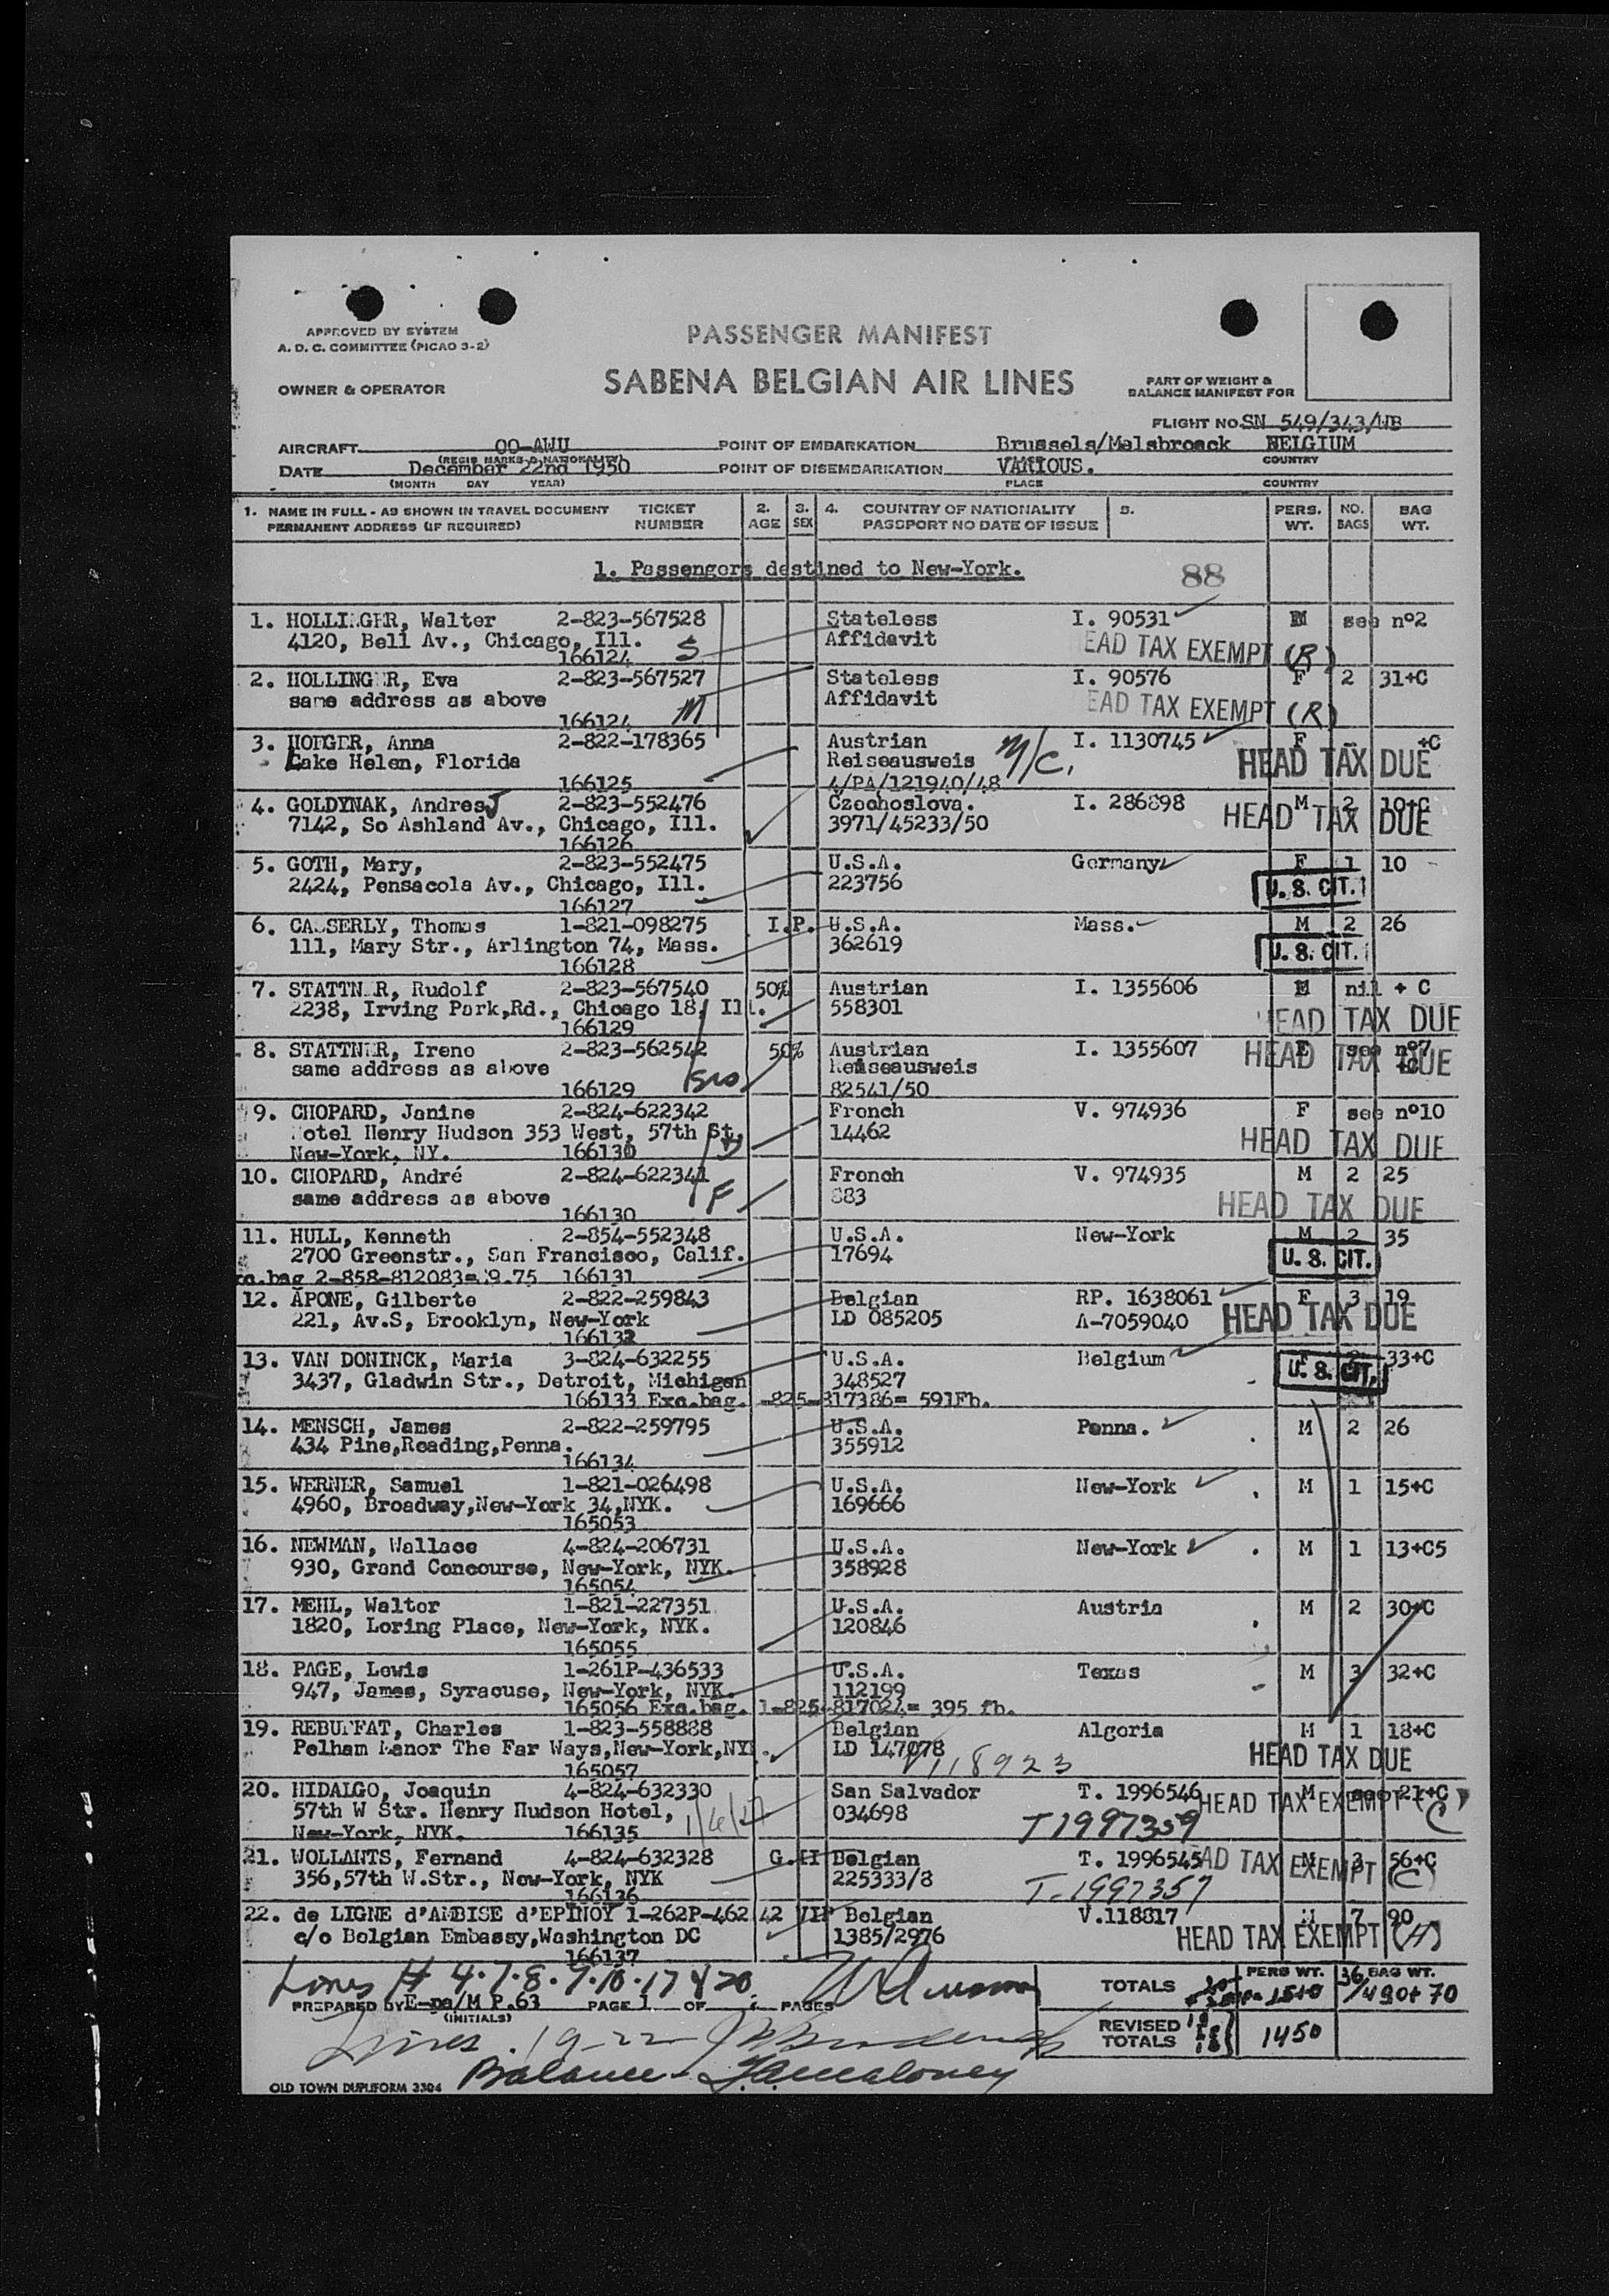 APPROVED BY SYSTEM
A. D. C. COMMITTEE (PICAO 3-2)
PASSENGER MANIFEST
OWNER & OPERATOR
SABENA BELGIAN AIR LINES
PART OF WEIGHT &
BALANCE MANIFEST FOR
FLIGHT NO. SN 549/343/WB
AIRCRAFT OO-AWU POINT OF EMBARKATION Brussels/Melsbroeck BELGIUM
(REGIS MARKS & NATIONALITY) COUNTRY
DATE December 22nd 1950 POINT OF DISEMBARKATION VARIOUS.
(MONTH DAY YEAR) PLACE COUNTRY
1. NAME IN FULL - AS SHOWN IN TRAVEL DOCUMENT TICKET 2. 3. 4. COUNTRY OF NATIONALITY 5. PERS. NO. BAG
PERMANENT ADDRESS (IF REQUIRED) NUMBER AGE SEX PASSPORT NO DATE OF ISSUE WT. BAGS WT.
1. Passengers destined to New-York. 88
1. HOLLINGER, Walter 2-823-567528 Stateless I. 90531 M see nº2
4120, Bell Av., Chicago, Ill. Affidavit EAD TAX EXEMPT (R)
166124 S
2. HOLLINGER, Eva 2-823-567527 Stateless I. 90576 F 2 31+C
same address as above Affidavit EAD TAX EXEMPT (R)
166124 M
3. HOEGER, Anna 2-822-178365 Austrian M/C. I. 1130745 F +C
Lake Helen, Florida Reiseausweis HEAD TAX DUE
166125 4/PA/121940/48
4. GOLDYNAK, Andres J 2-823-552476 Czechoslova. I. 286898 M 2 10+C
7142, So Ashland Av., Chicago, Ill. 3971/45233/50 HEAD TAX DUE
166126
5. GOTH, Mary, 2-823-552475 U.S.A. Germany F 1 10
2424, Pensacola Av., Chicago, Ill. 223756 U. S. CIT.
166127
6. CASSERLY, Thomas 1-821-098275 I.P. U.S.A. Mass. M 2 26
111, Mary Str., Arlington 74, Mass. 362619 U. S. CIT.
166128
7. STATTNER, Rudolf 2-823-567540 50% Austrian I. 1355606 M nil + C
2238, Irving Park,Rd., Chicago 18, Ill. 558301 HEAD TAX DUE
166129
8. STATTNER, Irene 2-823-562542 50% Austrian I. 1355607 see nº7
same address as above Reiseausweis HEAD TAX DUE
166129 82541/50
9. CHOPARD, Janine 2-824-622342 French V. 974936 F see nº10
Hotel Henry Hudson 353 West, 57th St, 14462 HEAD TAX DUE
New-York, NY. 166130
10. CHOPARD, André 2-824-622341 French V. 974935 M 2 25
same address as above F 883 HEAD TAX DUE
166130
11. HULL, Kenneth 2-854-552348 U.S.A. New-York M 2 35
2700 Greenstr., San Francisco, Calif. 17694 U. S. CIT.
bag 2-858-812083= 9.75 166131
12. APONE, Gilberte 2-822-259843 Belgian RP. 1638061 F 3 19
221, Av.S, Brooklyn, New-York LD 085205 A-7059040 HEAD TAX DUE
166132
13. VAN DONINCK, Maria 3-824-632255 U.S.A. Belgium 33+C
3437, Gladwin Str., Detroit, Michigan 348527 U. S. CIT.
166133 Exc.bag. -825-817386= 591Fb.
14. MENSCH, James 2-822-259795 U.S.A. Penna. M 2 26
434 Pine,Reading,Penna. 355912
166134
15. WERNER, Samuel 1-821-026498 U.S.A. New-York M 1 15+C
4960, Broadway,New-York 34,NYK. 169666
165053
16. NEWMAN, Wallace 4-824-206731 U.S.A. New-York M 1 13+C5
930, Grand Concourse, New-York, NYK. 358928
165054
17. MEHL, Walter 1-821-227351 U.S.A. Austria M 2 30+C
1820, Loring Place, New-York, NYK. 120846
165055
18. PAGE, Lewis 1-261P-436533 U.S.A. Texas M 3 32+C
947, James, Syracuse, New-York, NYK. 112199
165056 Exc.bag. 1-825-817024= 395 fb.
19. REBUFFAT, Charles 1-823-558888 Belgian Algeria M 1 18+C
Pelham Manor The Far Ways,New-York,NYK. LD 147078 HEAD TAX DUE
165057 V118923
20. HIDALGO, Joaquin 4-824-632330 San Salvador T. 1996546 M see 21+C
57th W Str. Henry Hudson Hotel, 034698 HEAD TAX EXEMPT (C)
New-York, NYK. 166135 T1997359
21. WOLLANTS, Fernand 4-824-632328 G.H Belgian T. 1996545 M 3 56+C
356,57th W.Str., New-York, NYK 225333/8 AD TAX EXEMPT (C)
166136 T-1997357
22. de LIGNE d'AMBISE d'EPINOY 1-262P-462 42 VIP Belgian V.118817 M 7 90
c/o Belgian Embassy,Washington DC 1385/2976 HEAD TAX EXEMPT (A)
166137
Lines # 4.7.8.9.10.17 & 20
TOTALS PERS WT. 36 BAG WT.
1510 490+70
PREPARED BY E-pa/M P.63 PAGE 1 OF PAGES
(INITIALS)
REVISED
TOTALS 1450
Lines 19-22
Balance
OLD TOWN DUPLIFORM 3304